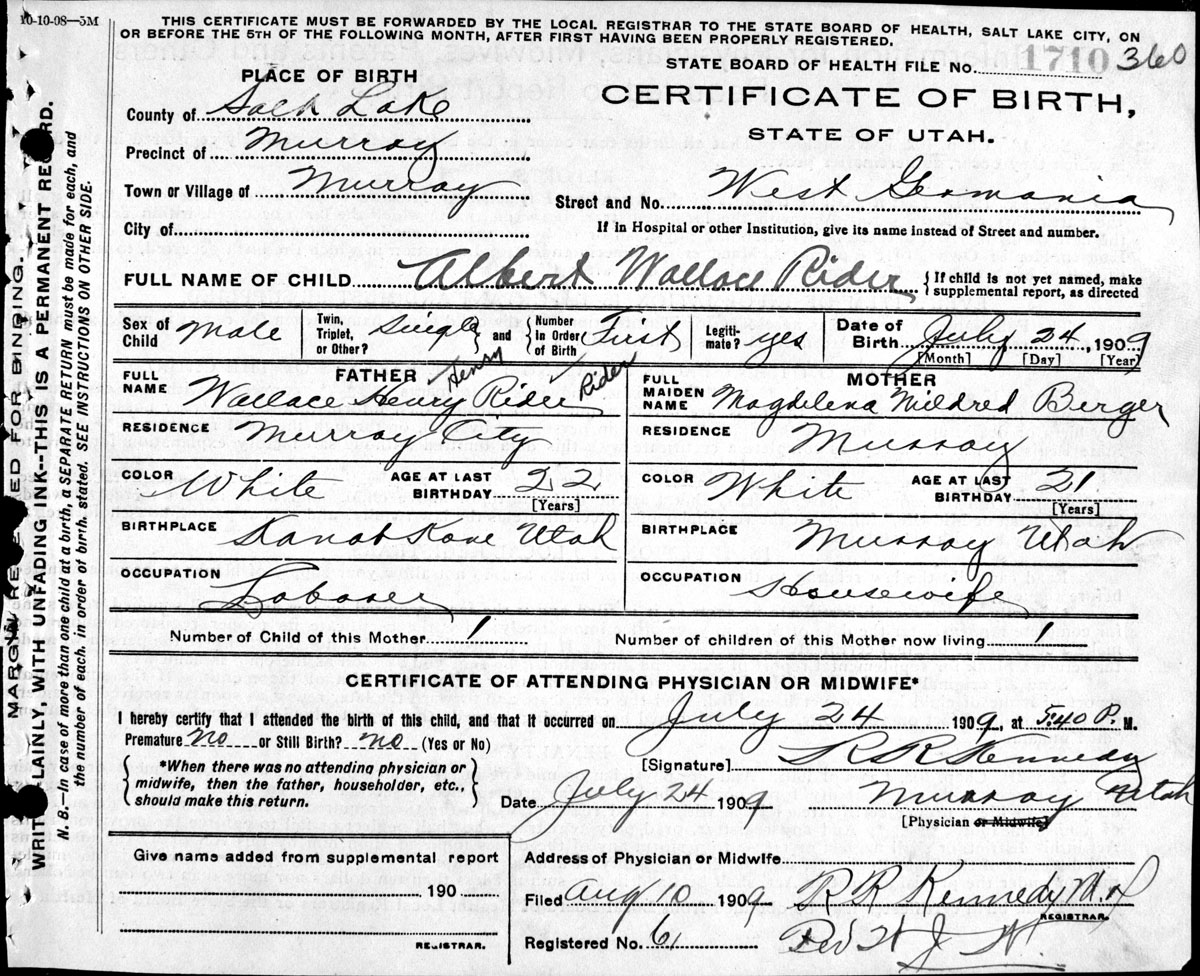 10-10-08—3M
THIS CERTIFICATE MUST BE FORWARDED BY THE LOCAL REGISTRAR TO THE STATE BOARD OF HEALTH, SALT LAKE CITY, ON
OR BEFORE THE 5TH OF THE FOLLOWING MONTH, AFTER FIRST HAVING BEEN PROPERLY REGISTERED.
STATE BOARD OF HEALTH FILE No. 1710 360
PLACE OF BIRTH
CERTIFICATE OF BIRTH,
STATE OF UTAH.
County of Salt Lake
Precinct of Murray
Town or Village of Murray
Street and No. West Germania
City of
If in Hospital or other Institution, give its name instead of Street and number.
FULL NAME OF CHILD Albert Wallace Rider {If child is not yet named, make supplemental report, as directed
Sex of Child Male Twin, Triplet, or Other? Single and {Number in Order of Birth First Legitimate? yes Date of Birth July 24, 1909
[Month] [Day] [Year]
FATHER Henry Rider
FULL NAME Wallace Henry Rider
RESIDENCE Murray City
COLOR White AGE AT LAST BIRTHDAY 22
[Years]
BIRTHPLACE Kanab Kane Utah
OCCUPATION Laborer
MOTHER
FULL MAIDEN NAME Magdelena Mildred Berger
RESIDENCE Murray
COLOR White AGE AT LAST BIRTHDAY 21
[Years]
BIRTHPLACE Murray Utah
OCCUPATION Housewife
Number of Child of this Mother 1 Number of children of this Mother now living 1
CERTIFICATE OF ATTENDING PHYSICIAN OR MIDWIFE*
I hereby certify that I attended the birth of this child, and that it occurred on July 24 1909, at 5:40 P. M.
Premature? No or Still Birth? no (Yes or No)
[Signature] R R Kennedy
{*When there was no attending physician or midwife, then the father, householder, etc., should make this return.}
Date July 24 1909 Murray Utah
[Physician or Midwife]
Give name added from supplemental report
190
REGISTRAR.
Address of Physician or Midwife
Filed Aug 10 1909 R R Kennedy M D
REGISTRAR.
Registered No. 61
MARGIN RESERVED FOR BINDING.
WRITE PLAINLY, WITH UNFADING INK--THIS IS A PERMANENT RECORD.
N. B.—In case of more than one child at a birth, a SEPARATE RETURN must be made for each, and
the number of each, in order of birth, stated. SEE INSTRUCTIONS ON OTHER SIDE.